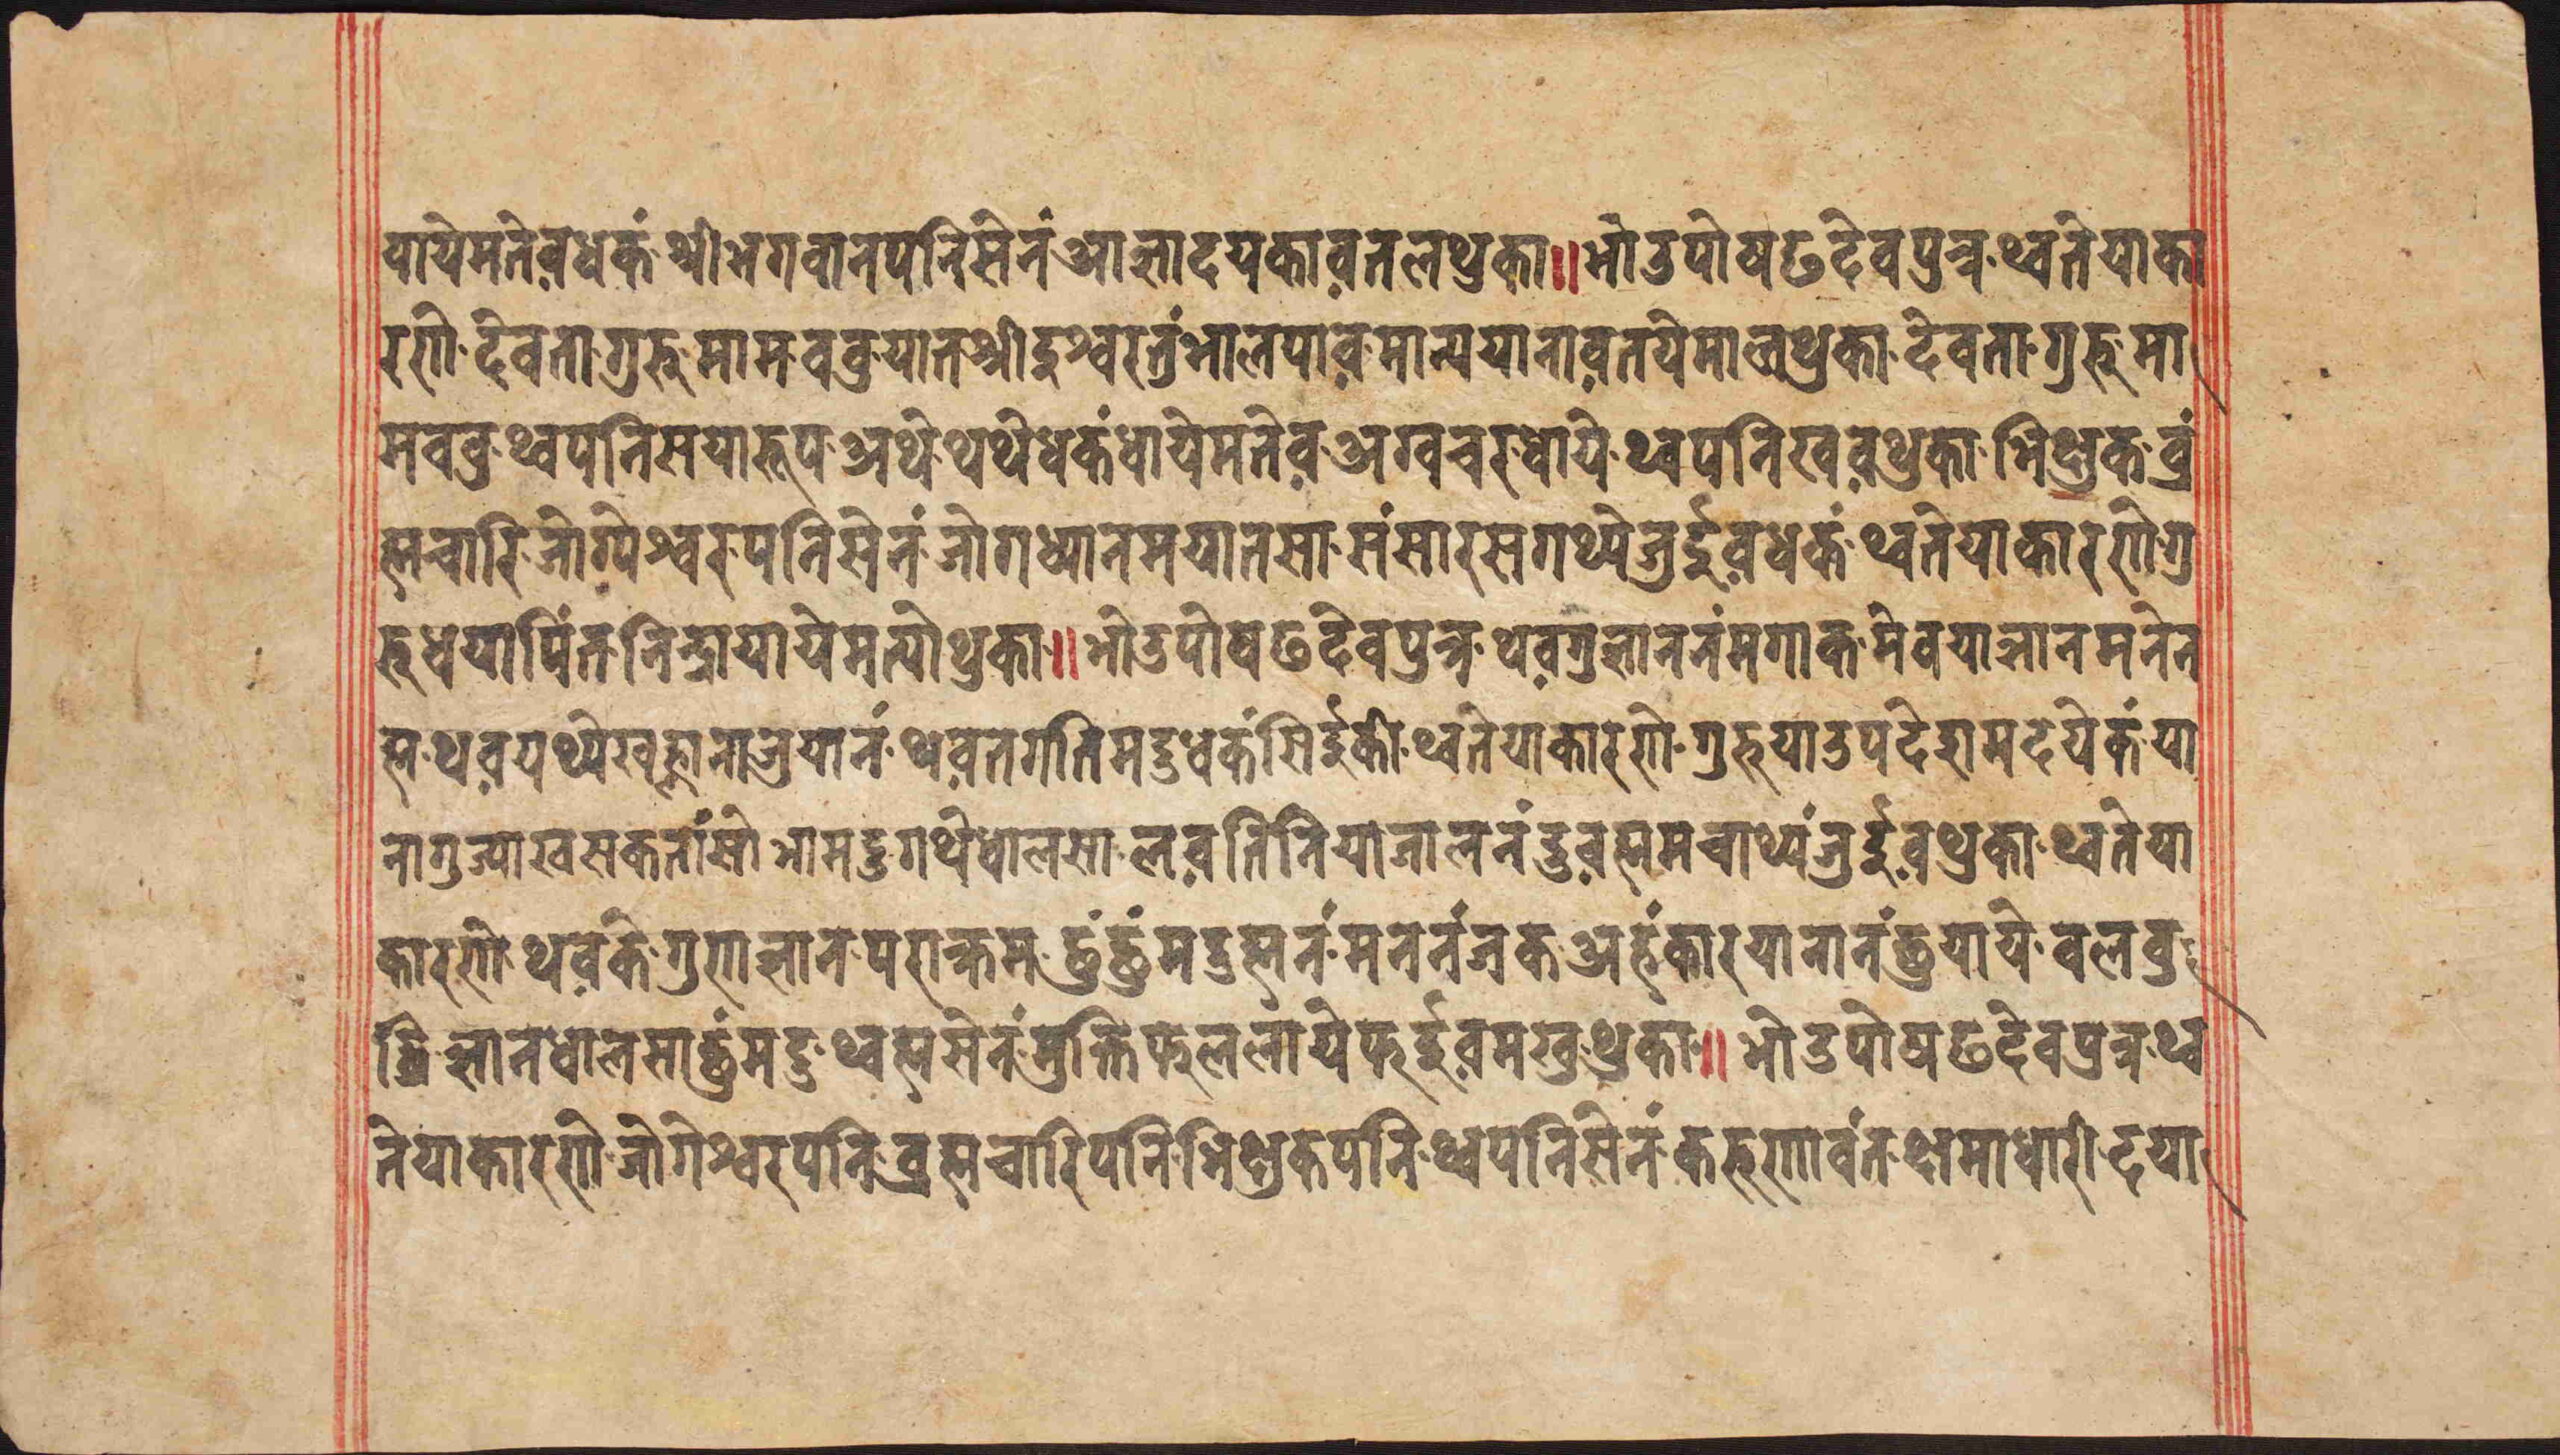 यायेमतेव़धकं श्रीभगवानपनिसेनं आज्ञादयकाव़तलथुका॥भोउपोषढदेवपुत्र थ्वतेयाका
रणे देवता गुरु मामववुयातश्रीइश्वरतुंभालपाव़मान्ययानाव़तयेमालथुका देवता गुरु मा
मववु थ्वपनिसयारूप अथे थथेधकंधायेमतेव़ अग्वचरधोये थ्वपनिखव़थुका भिक्षुक व्रं
ह्मचारि जोग्येश्वर पनिसेनं जोगध्यानमयातसा संसारसगथ्येजुईव़धकं थ्वतेयाकारणे गु
रूधयापिंत निन्द्रायायेमत्योथुका॥भोउपोषढदेवपुत्र थव़गुज्ञाननंमगाक मेवयाज्ञानमनेन
ह्म थव़यथ्येखह्लानाजुयानं थव़तगतिमदुधकंसिईकी थ्वतेयाकारणे गुरुयाउपदेशमदयेकं या
नागुज्याखसकतांसोभामदुगथेधालसा लव़तिनियाजालनंदुव़ह्ममचाथ्यंजुईव़थुका थ्वतेया
कारणे थव़के गुणज्ञान पराक्रम छुंछुंमदुह्मनं मननंजक अहंकारयानानंछुयाये वलवु
द्धिज्ञानधालसाछुंमदु थ्वह्मसेनंमुक्तिफललायेफईव़मखु थुका॥ भोउपोषढदेवपुत्र थ्व
तेयाकारणे जोगेश्वरपनि व्रह्मचारिपनि भिक्षुकपनि थ्वपनिसेनं करुणावंत क्षमाधारी दया